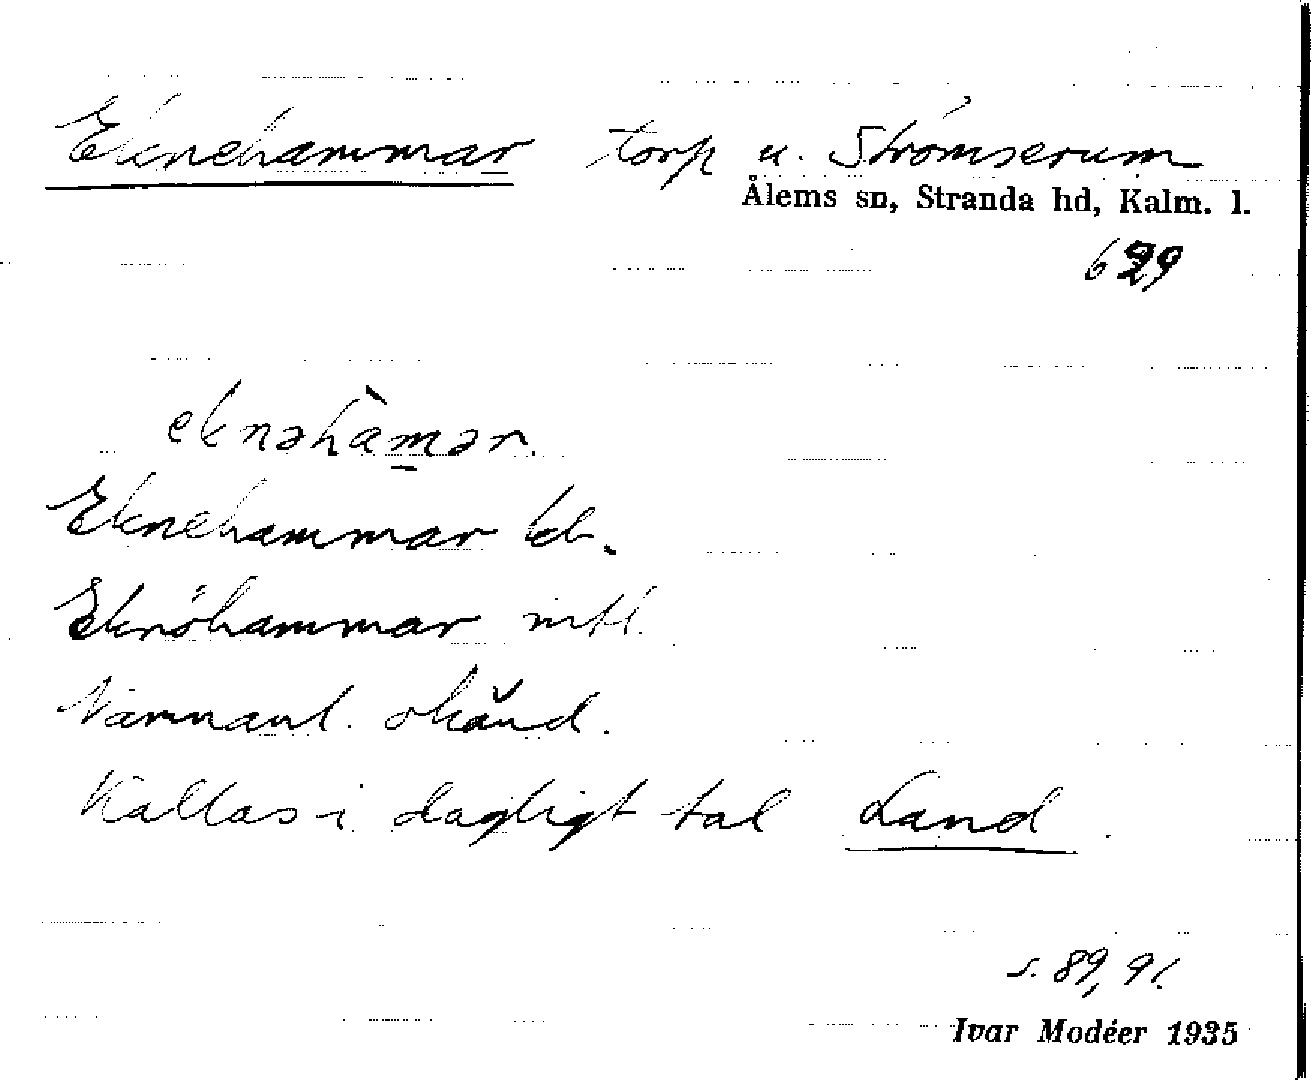 Eknehammar torp u. Strömserum
Ålems sn, Stranda hd, Kalm. l.
629
eknəhàmər.
Eknehammar kb.
Eknöhammar mtl.
Namnanl. okänd.
Kallas i dagligt tal Land.
s. 89, 91.
Ivar Modéer 1935